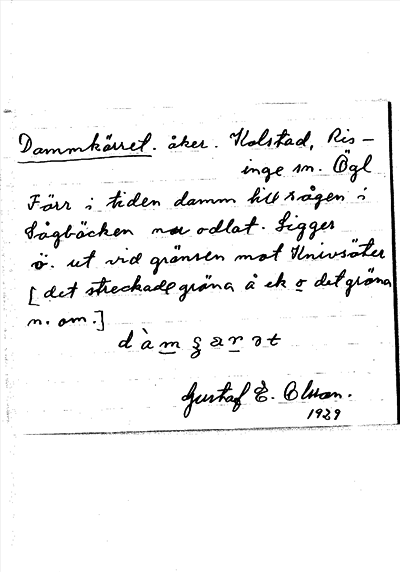 Dammkärret. åker. Kolstad, Ris-
inge sn. Ögl
Förr i tiden damm till sågen i
Sågbäcken nu odlat. Ligger
ö. ut vid gränsen mot Knivsäter
[det streckade gröna å ek o det gröna
n. om.]
dàmʒarət
Gustaf E. Olsson.
1929